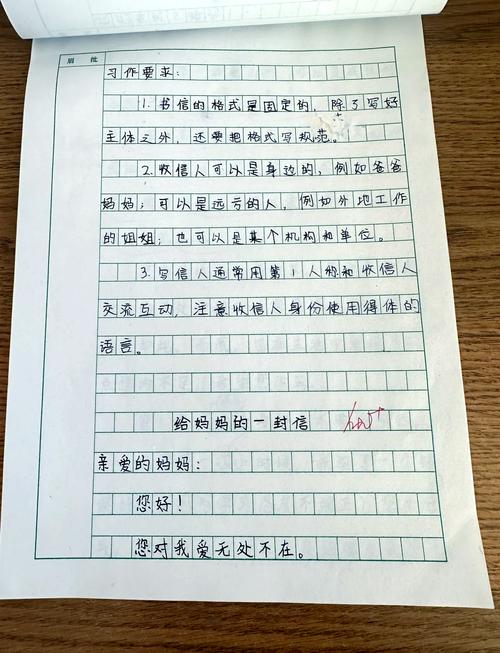 眉 批
习作要求:
1. 书信的格式是固定的, 除了写好
主体之外, 还要把格式写规范。
2. 收信人可以是身边的, 例如爸爸
妈妈; 可以是远方的人, 例如外地工作
的姐姐; 也可以是某个机构和单位。
3. 写信人通常用第1人称和收信人
交流互动, 注意收信人身份使用得体的
语言。
给妈妈的一封信
亲爱的妈妈:
您好!
您对我爱无处不在。